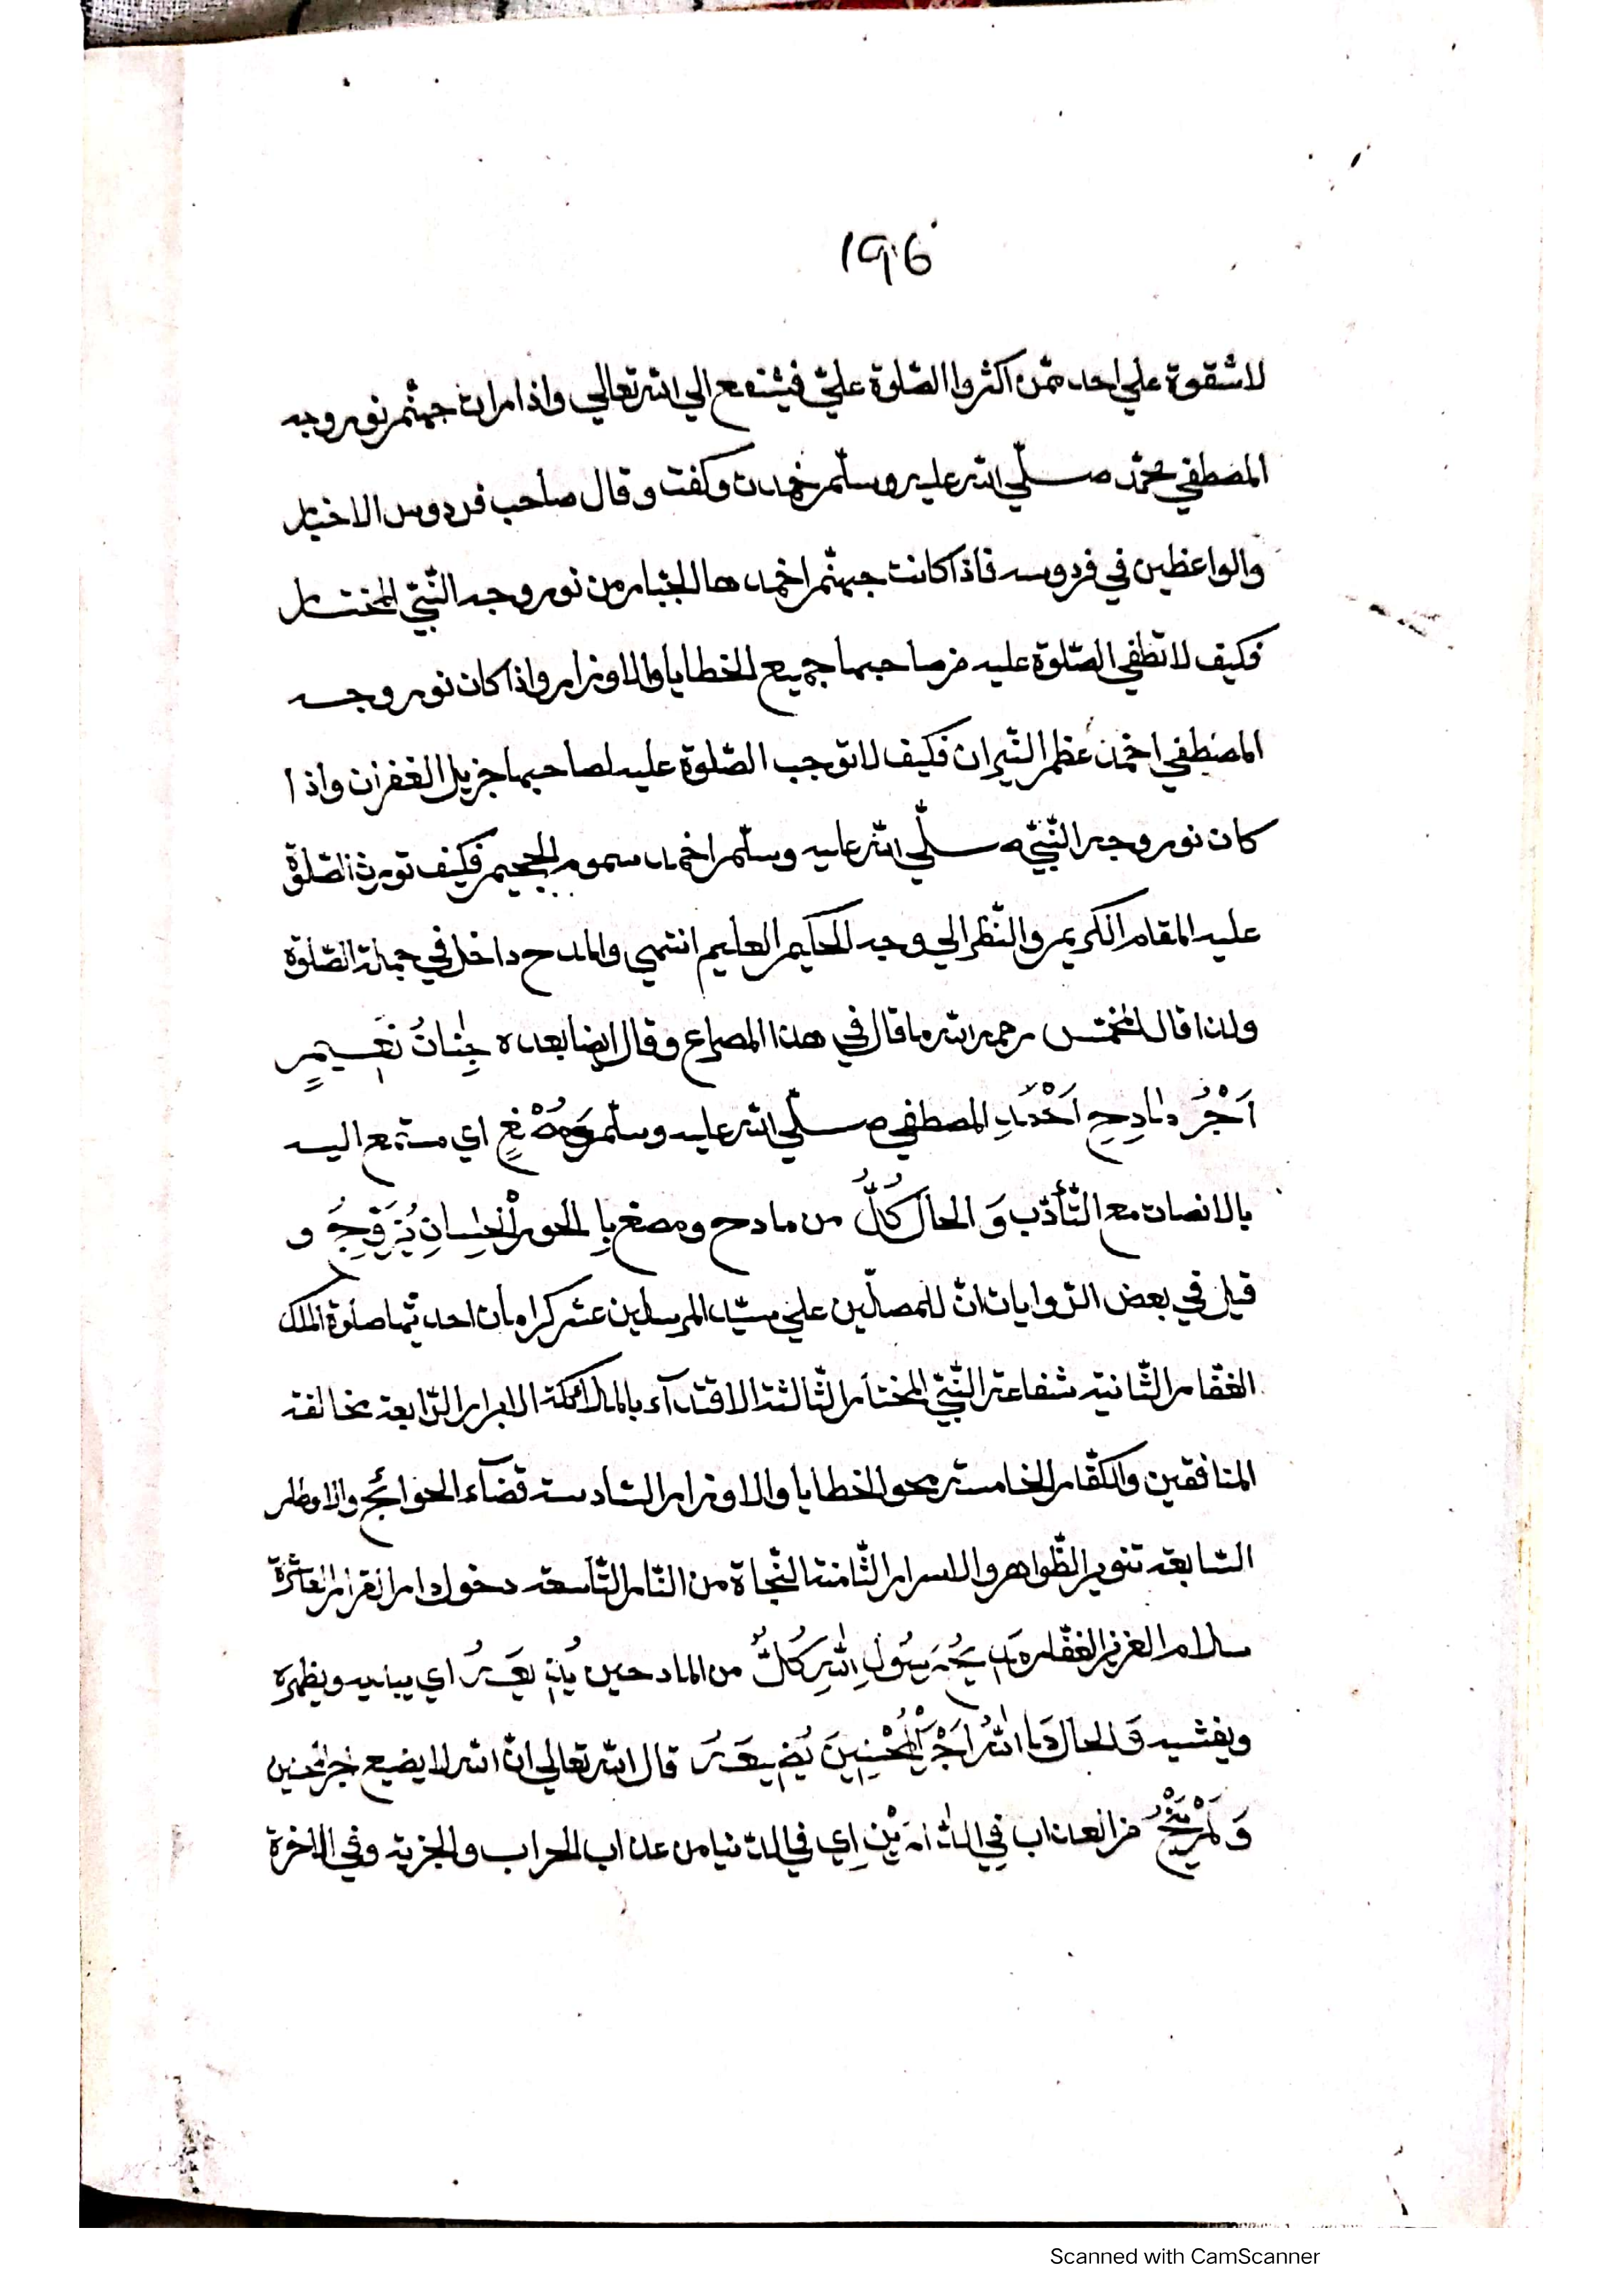 ١٩٦
لا شقوة علي احد ممّن اكثروا الصّلوة عليّ فيشفع الي الله تعالي واذا مرات جهنّم نور وجه
المصطفي محمّد صلّي الله عليه وسلّم خمدت وكفت وقال صاحب فردوس الاخيار
والواعظين في فردوسه فاذا كانت جهنّم اخمدها الجبّار من نور وجه النّبيّ المختار
فكيف لا تطفي الصّلوة عليه من صاحبها جميع الخطايا والاوزار واذا كان نور وجه
المصطفي اخمدت عظم النّيران فكيف لا توجب الصّلوة عليه لصاحبها جزيل الغفران واذا
كان نور وجه النّبيّ صلّي الله عليه وسلّم اخمد سموم الجحيم فكيف تورث الصّلوة
عليه المقام الكريم والنّظر الي وجه الحكيم العليم انتهي والمدح داخل في جملة الصّلوة
ولذا قال المخمّس رحمه الله ما قال في هذا المصراع وقال ايضا بعده جِنَانُ نَعِيمٍ
اَجْرُ مَادِحِ اَحْمَدِ المصطفي صلّي الله عليه وسلّم وَمُصْغٍ اي مستمع اليه
بالانصات مع التّأدّب وَ الحال كُلٌّ من مادح ومصغ بِالحورِ الْحِسَانِ يُزَوَّجُ و
قيل في بعض الرّوايات انّ للمصلّين علي سيّد المرسلين عشر كرامات احديها صلوة الملك
الغفّار الثّانية شفاعة النّبيّ المختار الثّالثة الاقتدآء بالملائكة الابرار الرّابعة مخالفة
المنافقين والكفّار الخامسة محو الخطايا والاوزار السّادسة قضآء الحوائج والاوطار
السّابعة تنوير الظّواهر والاسرار الثّامنة النّجاة من النّار التّاسعة دخول دار القرار العاشرة
سلام العزيز الغفّار مَدِيحُ رَسُولِ اللهِ كُلٌّ من المادحين يُذِيعُهُ اي يبينه ويظهره
ويفشيه وَ الحال مَا اللهُ اَجْرَ الْمُحْسِنِينَ يُضِيعُهُ قال الله تعالي انّ الله لا يضيع اجر المحسنين
وَلَمْ يَنْجُ من العذاب فِي الدَّارَيْنِ اي في الدّنيا من عذاب الحراب والجزية وفي الاخرة
Scanned with CamScanner